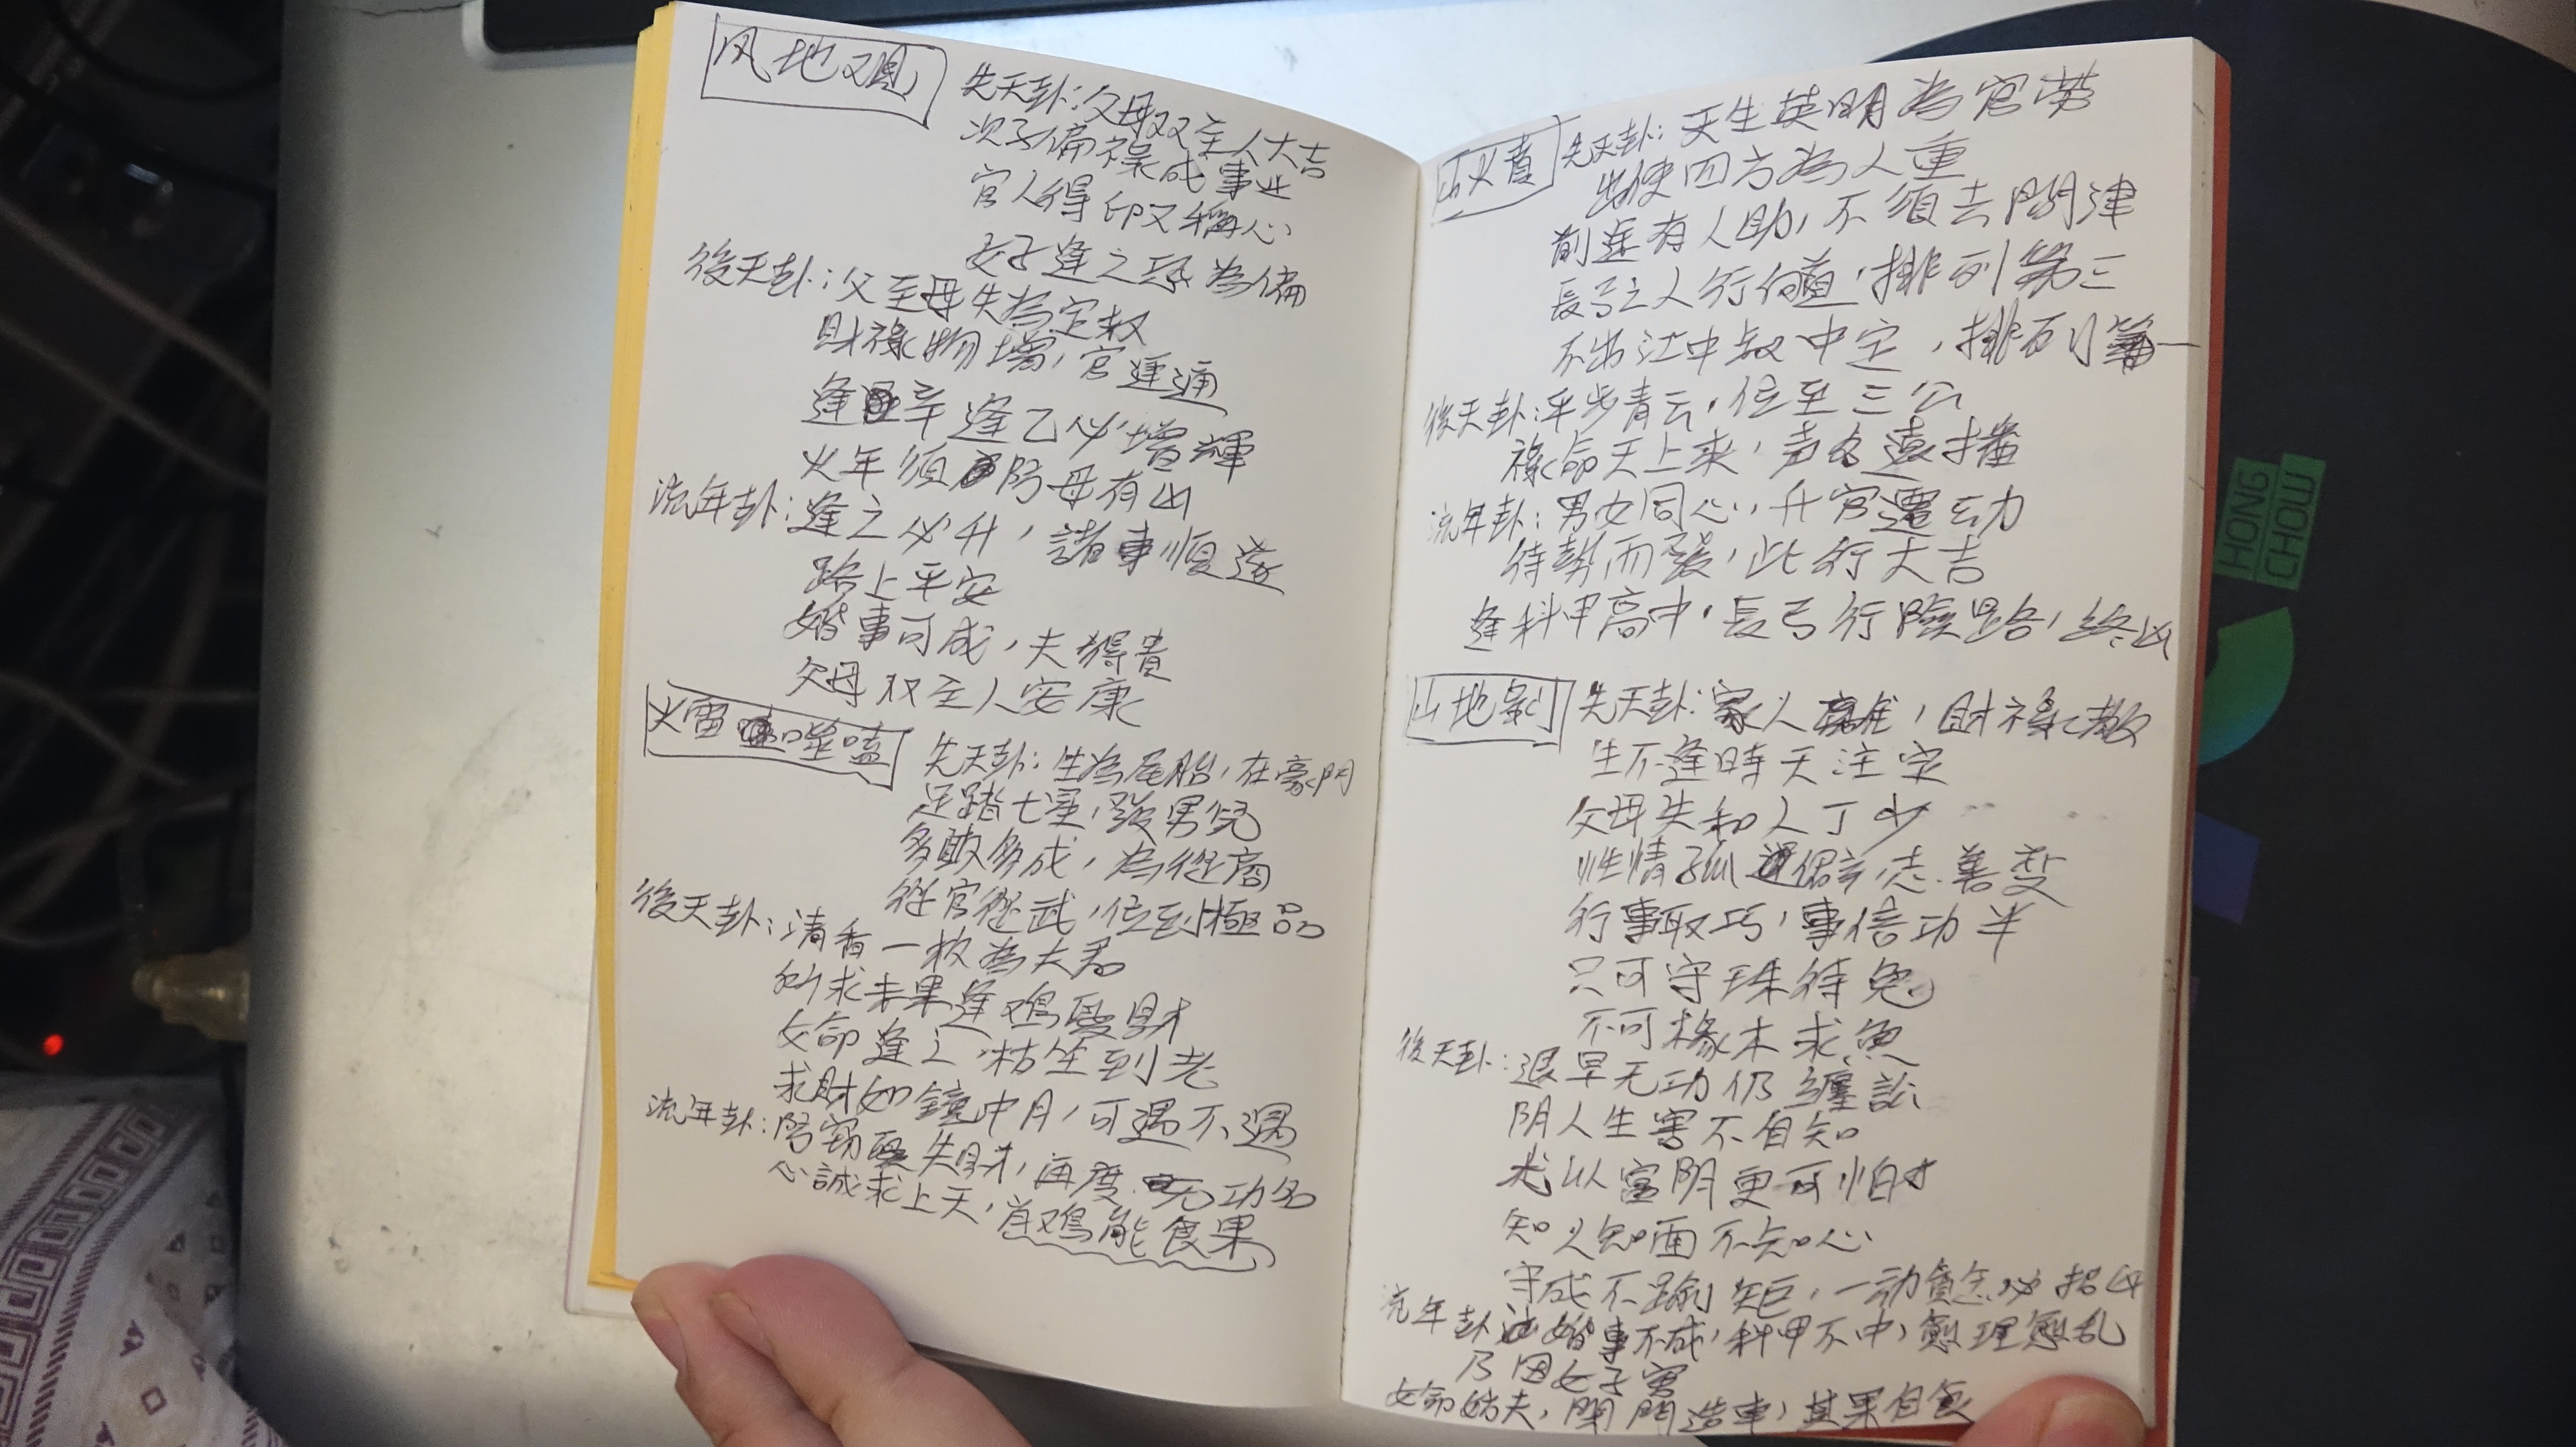 风地观
先天卦:父母双主人大吉
次子偏禄成事业
官人得印又稱心
女子逢之恐為偏
後天卦:父至母失為定数
財禄物增,官運通
逢辛逢乙必增輝
火年须防母有凶
流年卦:逢之必升,諸事順遂
路上平安
婚事可成,夫得貴
父母双主人安康
火雷噬嗑
先天卦:生為尾胎,在豪門
足踏七星,發男兒
多敢多成,為從商
從官從武,位到極品
後天卦:清香一枚為夫君
所求未果逢鸡發財
女命逢之,枯坐到老
求財如鏡中月,可遇不遇
流年卦:防竊失財,再度无功名
心誠求上天,首鸡能食果
山火賁
先天卦:天生英明為官荣
出使四方為人重
前途有人助,不须去問津
長弓之人行何道,排列第三
不出江中命中定,排列第一
後天卦:平步青云,位至三公
禄命天上来,声名遠播
流年卦:男女同心,升官遷动
待勢而發,此行大吉
逢科甲高中,長弓行險路,終凶
山地剝
先天卦:家人离难,財禄散
生不逢時天注定
父母失和人丁少
性情孤僻,志善变
行事取巧,事倍功半
只可守珠待兔
不可椽木求魚
後天卦:退早无功仍纏訟
阴人生害不自知
尤以宫阴更可怕
知人知面不知心
守成不踰矩,一动貪念必招凶
流年卦:婚事不成,科甲不中,愈理愈乱
乃因女子害
女命妨夫,閉門造車,其果自食
HONG
CHOW